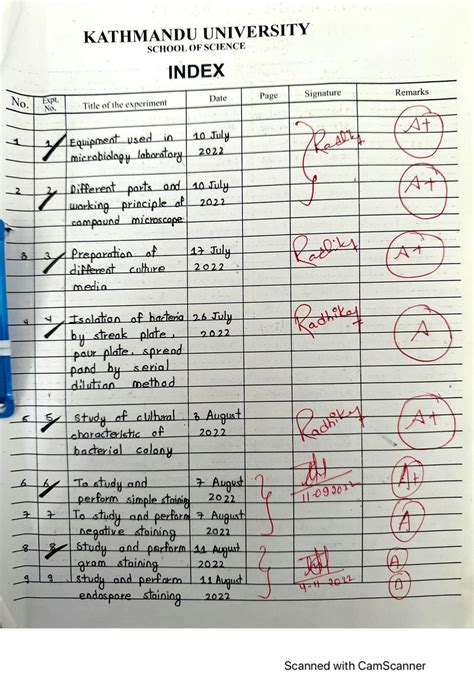 KATHMANDU UNIVERSITY
SCHOOL OF SCIENCE
INDEX
No. Expt. No. Title of the experiment Date Page Signature Remarks
1 1 Equipment used in 10 July Radhika A+
microbiology laboratory 2022
2 2 Different parts and 10 July A+
working principle of 2022
compound microscope
3 3 Preparation of 17 July Radhika A+
different culture 2022
media
4 4 Isolation of bacteria 26 July Radhika A
by streak plate, 2022
pour plate, spread
pand by serial
dilution method
5 5 Study of cultural 3 August Radhika A+
characteristic of 2022
bacterial colony
6 6 To study and 7 August A+
perform simple staining 2022 11-092022
7 7 To study and perform 7 August A
negative staining 2022
8 8 Study and perform 11 August A
gram staining 2022
9 9 study and perform 11 August 4-11 2022 A
endospore staining 2022
Scanned with CamScanner